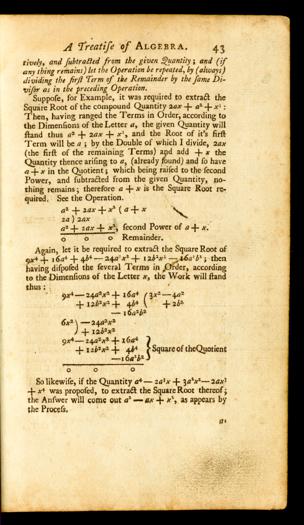 A Treatise of ALGEBRA. 43
tively, and subtracted from the given Quantity; and (if
any thing remains) let the Operation be repeated, by (always)
dividing the first Term of the Remainder by the same Di-
visor as in the preceding Operation.
Suppose, for Example, it was required to extract the
Square Root of the compound Quantity 2ax + a² + x²:
Then, having ranged the Terms in Order, according to
the Dimensions of the Letter a, the given Quantity will
stand thus a² + 2ax + x², and the Root of it's first
Term will be a; by the Double of which I divide, 2ax
(the first of the remaining Terms) and add + x the
Quantity thence arising to a, (already found) and so have
a + x in the Quotient; which being raised to the second
Power, and subtracted from the given Quantity, no-
thing remains; therefore a + x is the Square Root re-
quired. See the Operation.
a² + 2ax + x² ( a + x
2a ) 2ax
a² + 2ax + x², second Power of a + x.
0 0 0 Remainder.
Again, let it be required to extract the Square Root of
9x⁴ + 16a⁴ + 4b⁴ — 24a²x² + 12b²x² — 16a²b²; then
having disposed the several Terms in Order, according
to the Dimensions of the Letter x, the Work will stand
thus:
9x⁴ — 24a²x² + 16a⁴ ( 3x² — 4a²
+ 12b²x² + 4b⁴ + 2b²
— 16a²b²
6x² ) — 24a²x²
+ 12b²x²
9x⁴ — 24a²x² + 16a⁴
+ 12b²x² + 4b⁴ } Square of the Quotient
— 16a²b²
0 0 0
So likewise, if the Quantity a⁴ — 2a³x + 3a²x² — 2ax³
+ x⁴ was proposed, to extract the Square Root thereof;
the Answer will come out a² — ax + x², as appears by
the Process.